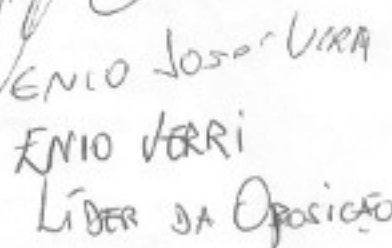 ENIO JOSÉ VERRI
ENIO VERRI
LÍDER DA OPOSIÇÃO